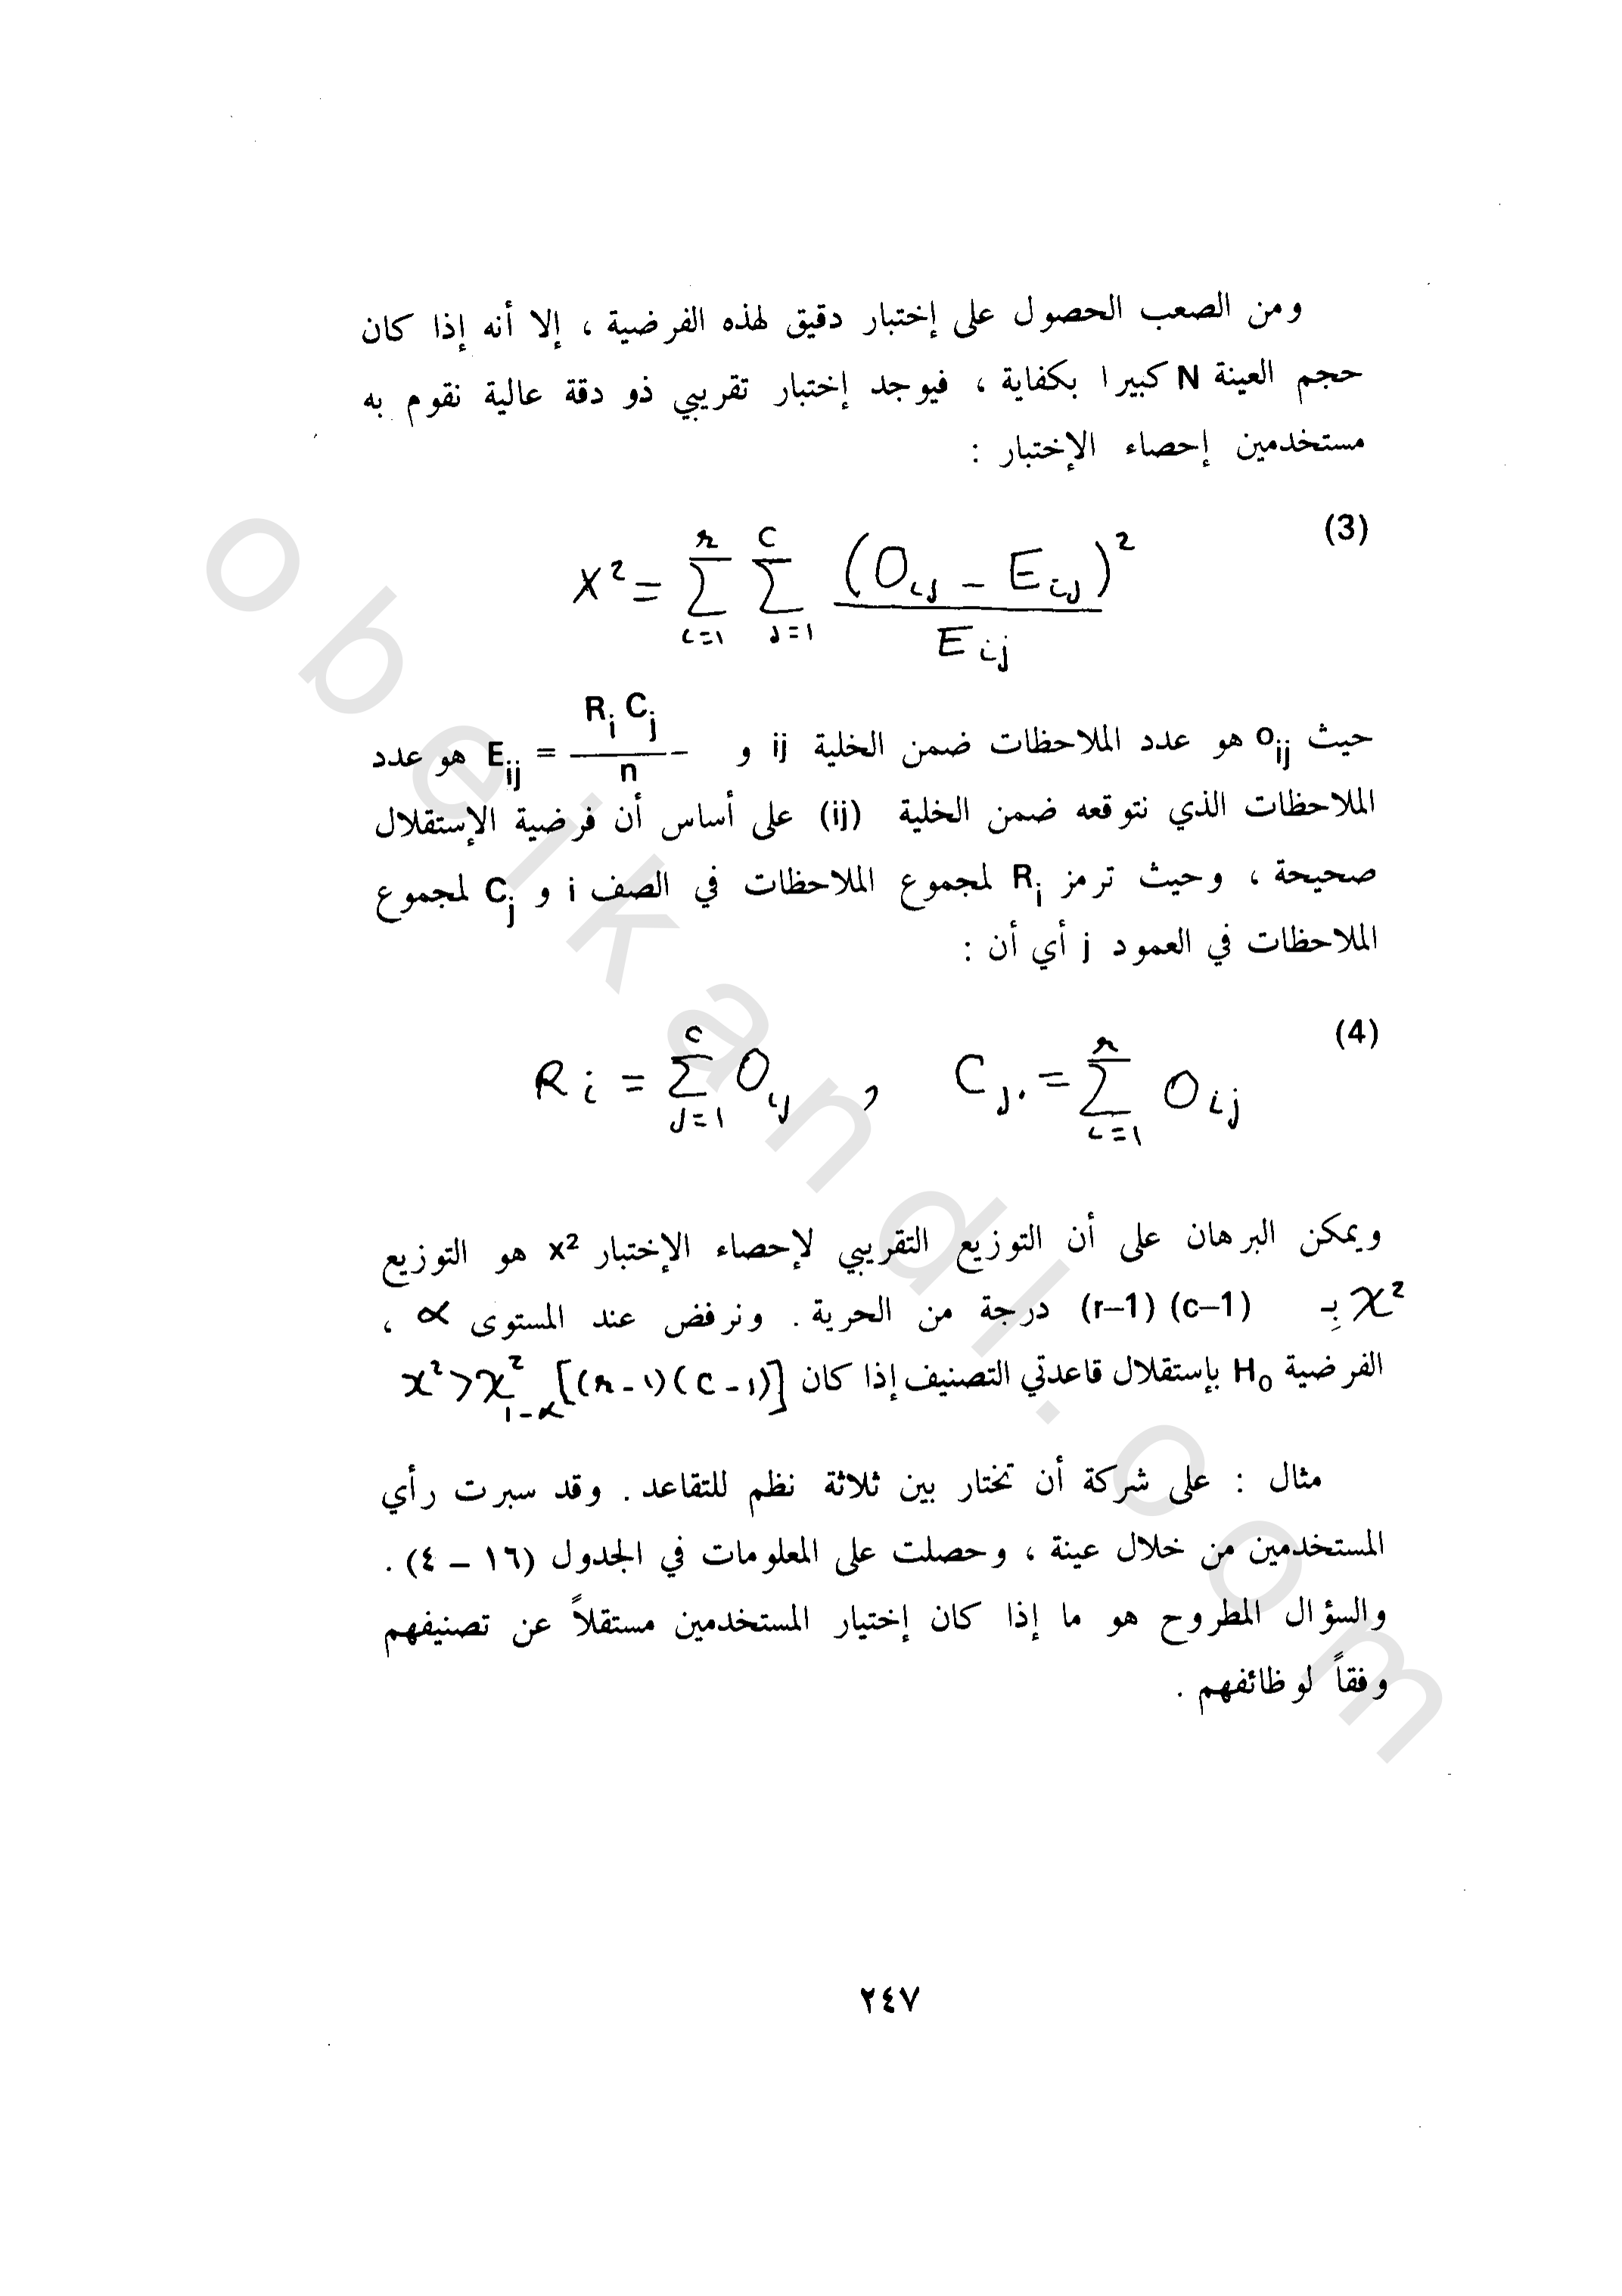 ومن الصعب الحصول على إختبار دقيق لهذه الفرضية ، إلا أنه إذا كان
حجم العينة N كبيرا بكفاية ، فيوجد إختبار تقريبي ذو دقة عالية نقوم به
مستخدمين إحصاء الإختبار :
(3)
X² = Σ_{i=1}^{r} Σ_{j=1}^{c} (O_ij - E_ij)² / E_ij
حيث o_ij هو عدد الملاحظات ضمن الخلية ij و E_ij = R_i C_j / n هو عدد
الملاحظات الذي نتوقعه ضمن الخلية (ij) على أساس أن فرضية الإستقلال
صحيحة ، وحيث ترمز R_i لمجموع الملاحظات في الصف i و C_j لمجموع
الملاحظات في العمود j أي أن :
(4)
R_i = Σ_{j=1}^{c} O_ij , C_j = Σ_{i=1}^{r} O_ij
ويمكن البرهان على أن التوزيع التقريبي لإحصاء الإختبار x² هو التوزيع
χ² بِـ (r–1) (c–1) درجة من الحرية . ونرفض عند المستوى α ،
الفرضية H₀ بإستقلال قاعدتي التصنيف إذا كان x² > χ²_{1-α} [(r-1)(c-1)]
مثال : على شركة أن تختار بين ثلاثة نظم للتقاعد . وقد سبرت رأي
المستخدمين من خلال عينة ، وحصلت على المعلومات في الجدول (١٦ – ٤) .
والسؤال المطروح هو ما إذا كان إختيار المستخدمين مستقلاً عن تصنيفهم
وفقاً لوظائفهم .
٢٤٧
obeikandl.com